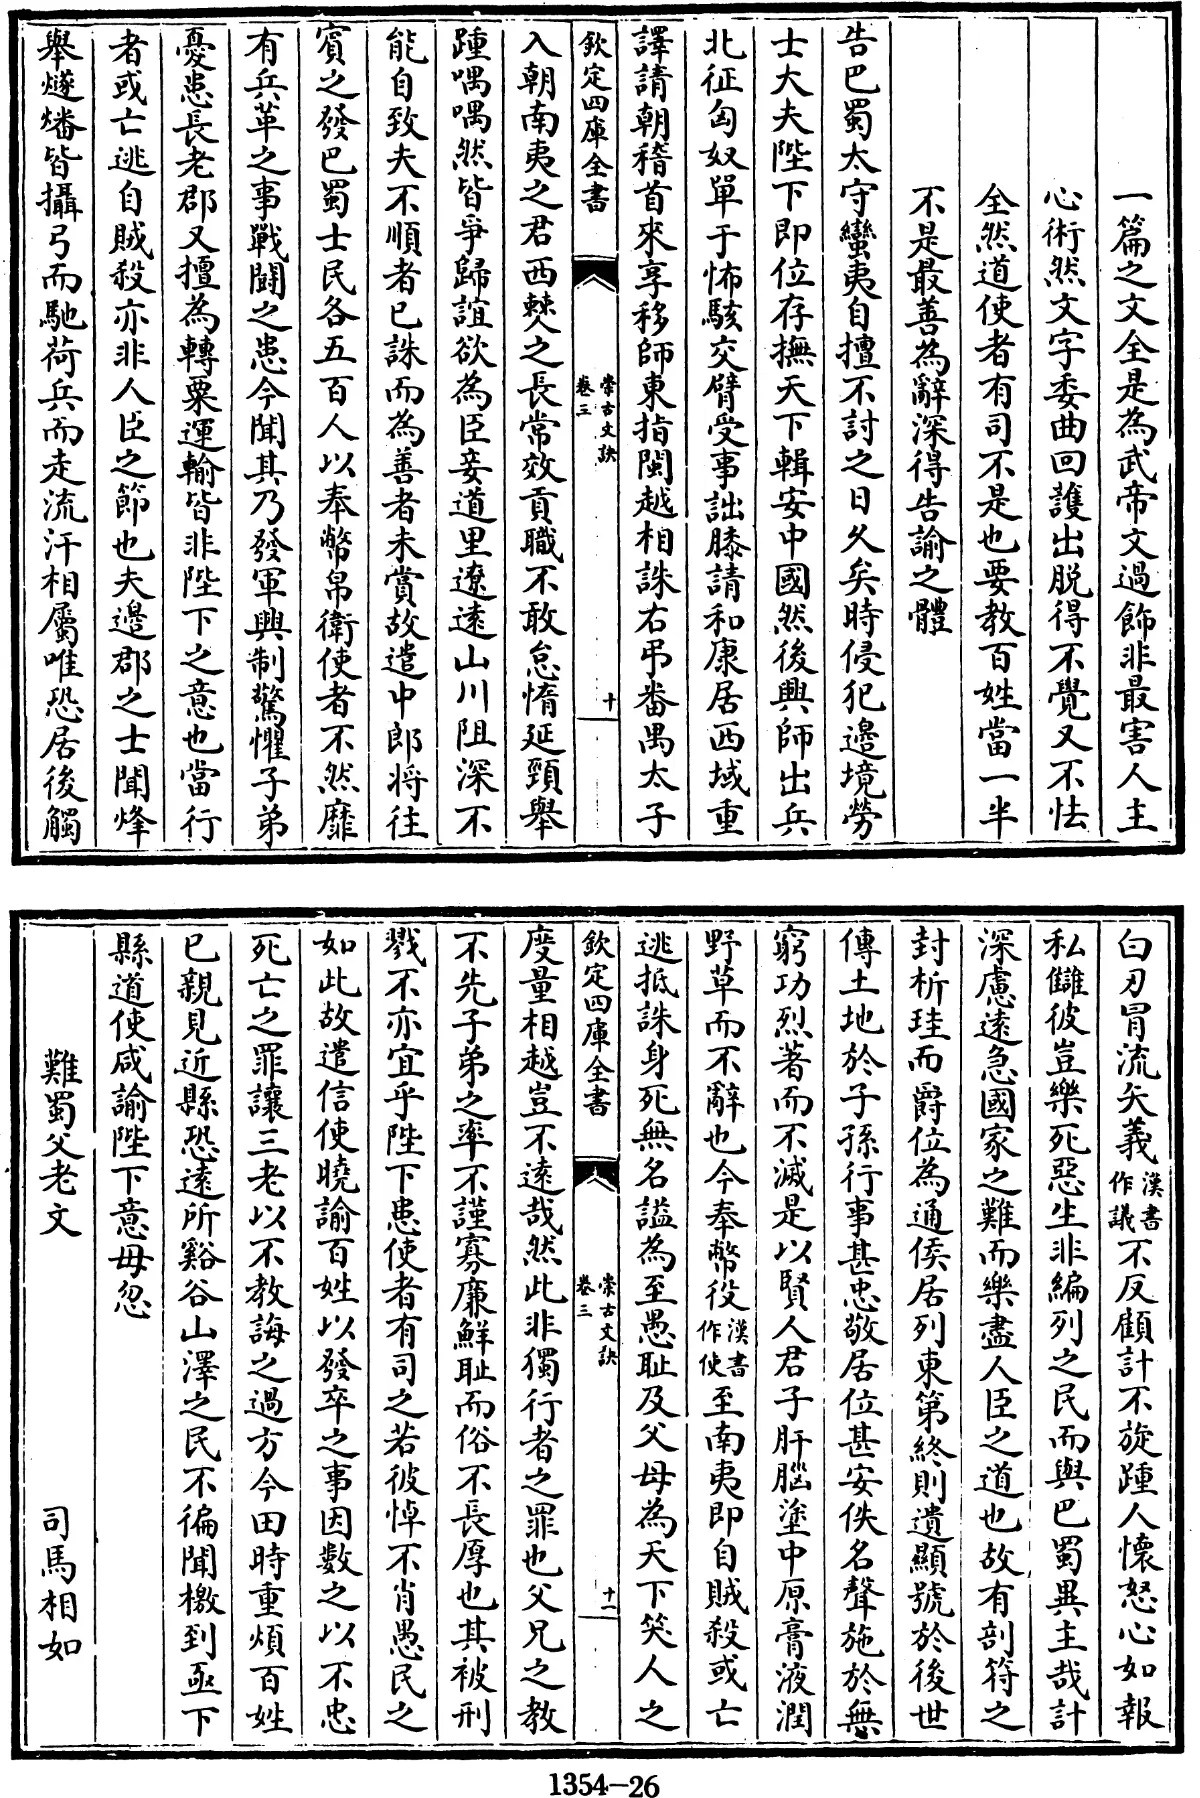 一篇之文全是為武帝文過飾非最害人主
心術然文字委曲回護出脱得不覺又不怯
全然道使者有司不是也要教百姓當一半
不是最善為辭深得告諭之體
告巴蜀太守蠻夷自擅不討之日久矣時侵犯邊境勞
士大夫陛下即位存撫天下輯安中國然後興師出兵
北征匈奴單于怖駭交臂受事詘膝請和康居西域重
譯請朝稽首來享移師東指閩越相誅右弔番禺太子
欽定四庫全書
崇古文訣
卷三
十
入朝南夷之君西僰之長常效貢職不敢怠惰延頸舉
踵喁喁然皆爭歸誼欲為臣妾道里遼逺山川阻深不
能自致夫不順者已誅而為善者未賞故遣中郎將往
賓之發巴蜀士民各五百人以奉幣帛衛使者不然靡
有兵革之事戰鬪之患今聞其乃發軍興制驚懼子弟
憂患長老郡又擅為轉粟運輸皆非陛下之意也當行
者或亡逃自賊殺亦非人臣之節也夫邊郡之士聞烽
舉燧燔皆攝弓而馳荷兵而走流汗相屬唯恐居後觸
白刃冒流矢義漢書作議不反顧計不旋踵人懷怒心如報
私讎彼豈樂死惡生非編列之民而與巴蜀異主哉計
深慮逺急國家之難而樂盡人臣之道也故有剖符之
封析珪而爵位為通侯居列東第終則遺顯號於後世
傳土地於子孫行事甚忠敬居位甚安佚名聲施於無
窮功烈著而不滅是以賢人君子肝腦塗中原膏液潤
野草而不辭也今奉幣役漢書作使至南夷即自賊殺或亡
逃抵誅身死無名諡為至愚耻及父母為天下笑人之
欽定四庫全書
崇古文訣
卷三
十一
度量相越豈不逺哉然此非獨行者之罪也父兄之教
不先子弟之率不謹寡廉鮮耻而俗不長厚也其被刑
戮不亦宜乎陛下患使者有司之若彼悼不肖愚民之
如此故遣信使曉諭百姓以發卒之事因數之以不忠
死亡之罪讓三老以不教誨之過方今田時重煩百姓
已親見近縣恐逺所谿谷山澤之民不徧聞檄到亟下
縣道使咸諭陛下意毋忽
難蜀父老文　司馬相如
1354-26